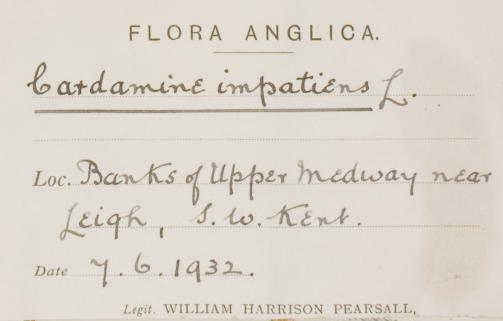 FLORA ANGLICA.
Cardamine impatiens L.
Loc. Banks of Upper Medway near
Leigh, S.W. Kent.
Date 7.6.1932.
Legit. WILLIAM HARRISON PEARSALL,